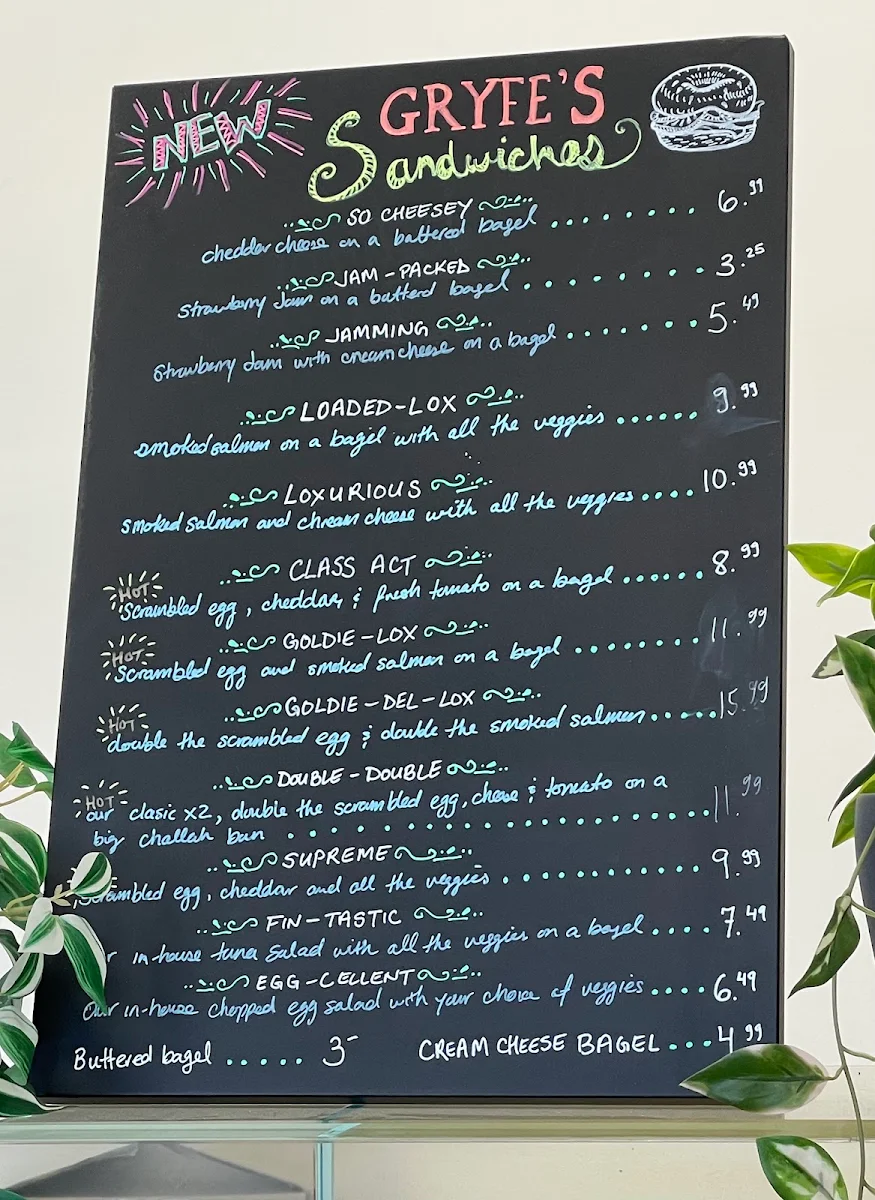 NEW
GRYFE'S
Sandwiches
SO CHEESEY
chedder cheese on a buttered bagel ........ 6.99
JAM-PACKED
Strawberry Jam on a butterd bagel ........ 3.25
JAMMING
Strawberry Jam with cream cheese on a bagel ...... 5.49
LOADED-LOX
smoked salmon on a bagel with all the veggies ...... 9.99
LOXURIOUS
smoked salmon and chream cheese with all the veggies .... 10.99
CLASS ACT
HOT
Scrambled egg, cheddar & fresh tomato on a bagel ...... 8.99
GOLDIE-LOX
HOT
Scrambled egg and smoked salmon on a bagel ........ 11.99
GOLDIE-DEL-LOX
HOT
double the scrambled egg & double the smoked salmon ..... 15.99
DOUBLE-DOUBLE
HOT
our clasic x2, double the scrambled egg, cheese & tomato on a
big challah bun .................... 11.99
SUPREME
Scrambled egg, cheddar and all the veggies ............ 9.99
FIN-TASTIC
in-house tuna Salad with all the veggies on a bagel .... 7.49
EGG-CELLENT
Our in-house chopped egg salad with your choice of veggies .... 6.49
Buttered bagel ..... 3- CREAM CHEESE BAGEL ... 4.99